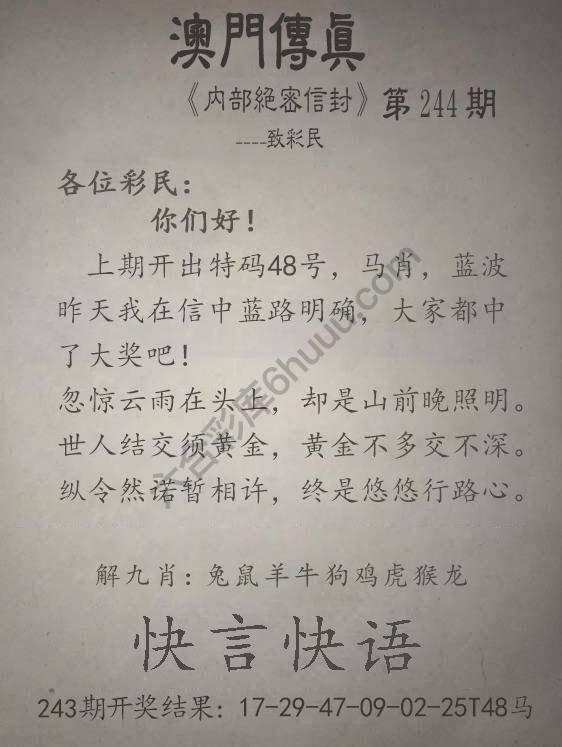 澳門傳眞
《内部絕密信封》第244期
----致彩民
各位彩民：
你们好！
上期开出特码48号，马肖，蓝波
昨天我在信中蓝路明确，大家都中
了大奖吧！
忽惊云雨在头上，却是山前晚照明。
世人结交须黄金，黄金不多交不深。
纵令然诺暂相许，终是悠悠行路心。
解九肖：兔鼠羊牛狗鸡虎猴龙
快言快语
243期开奖结果：17-29-47-09-02-25T48马
六合彩库6huuu.com